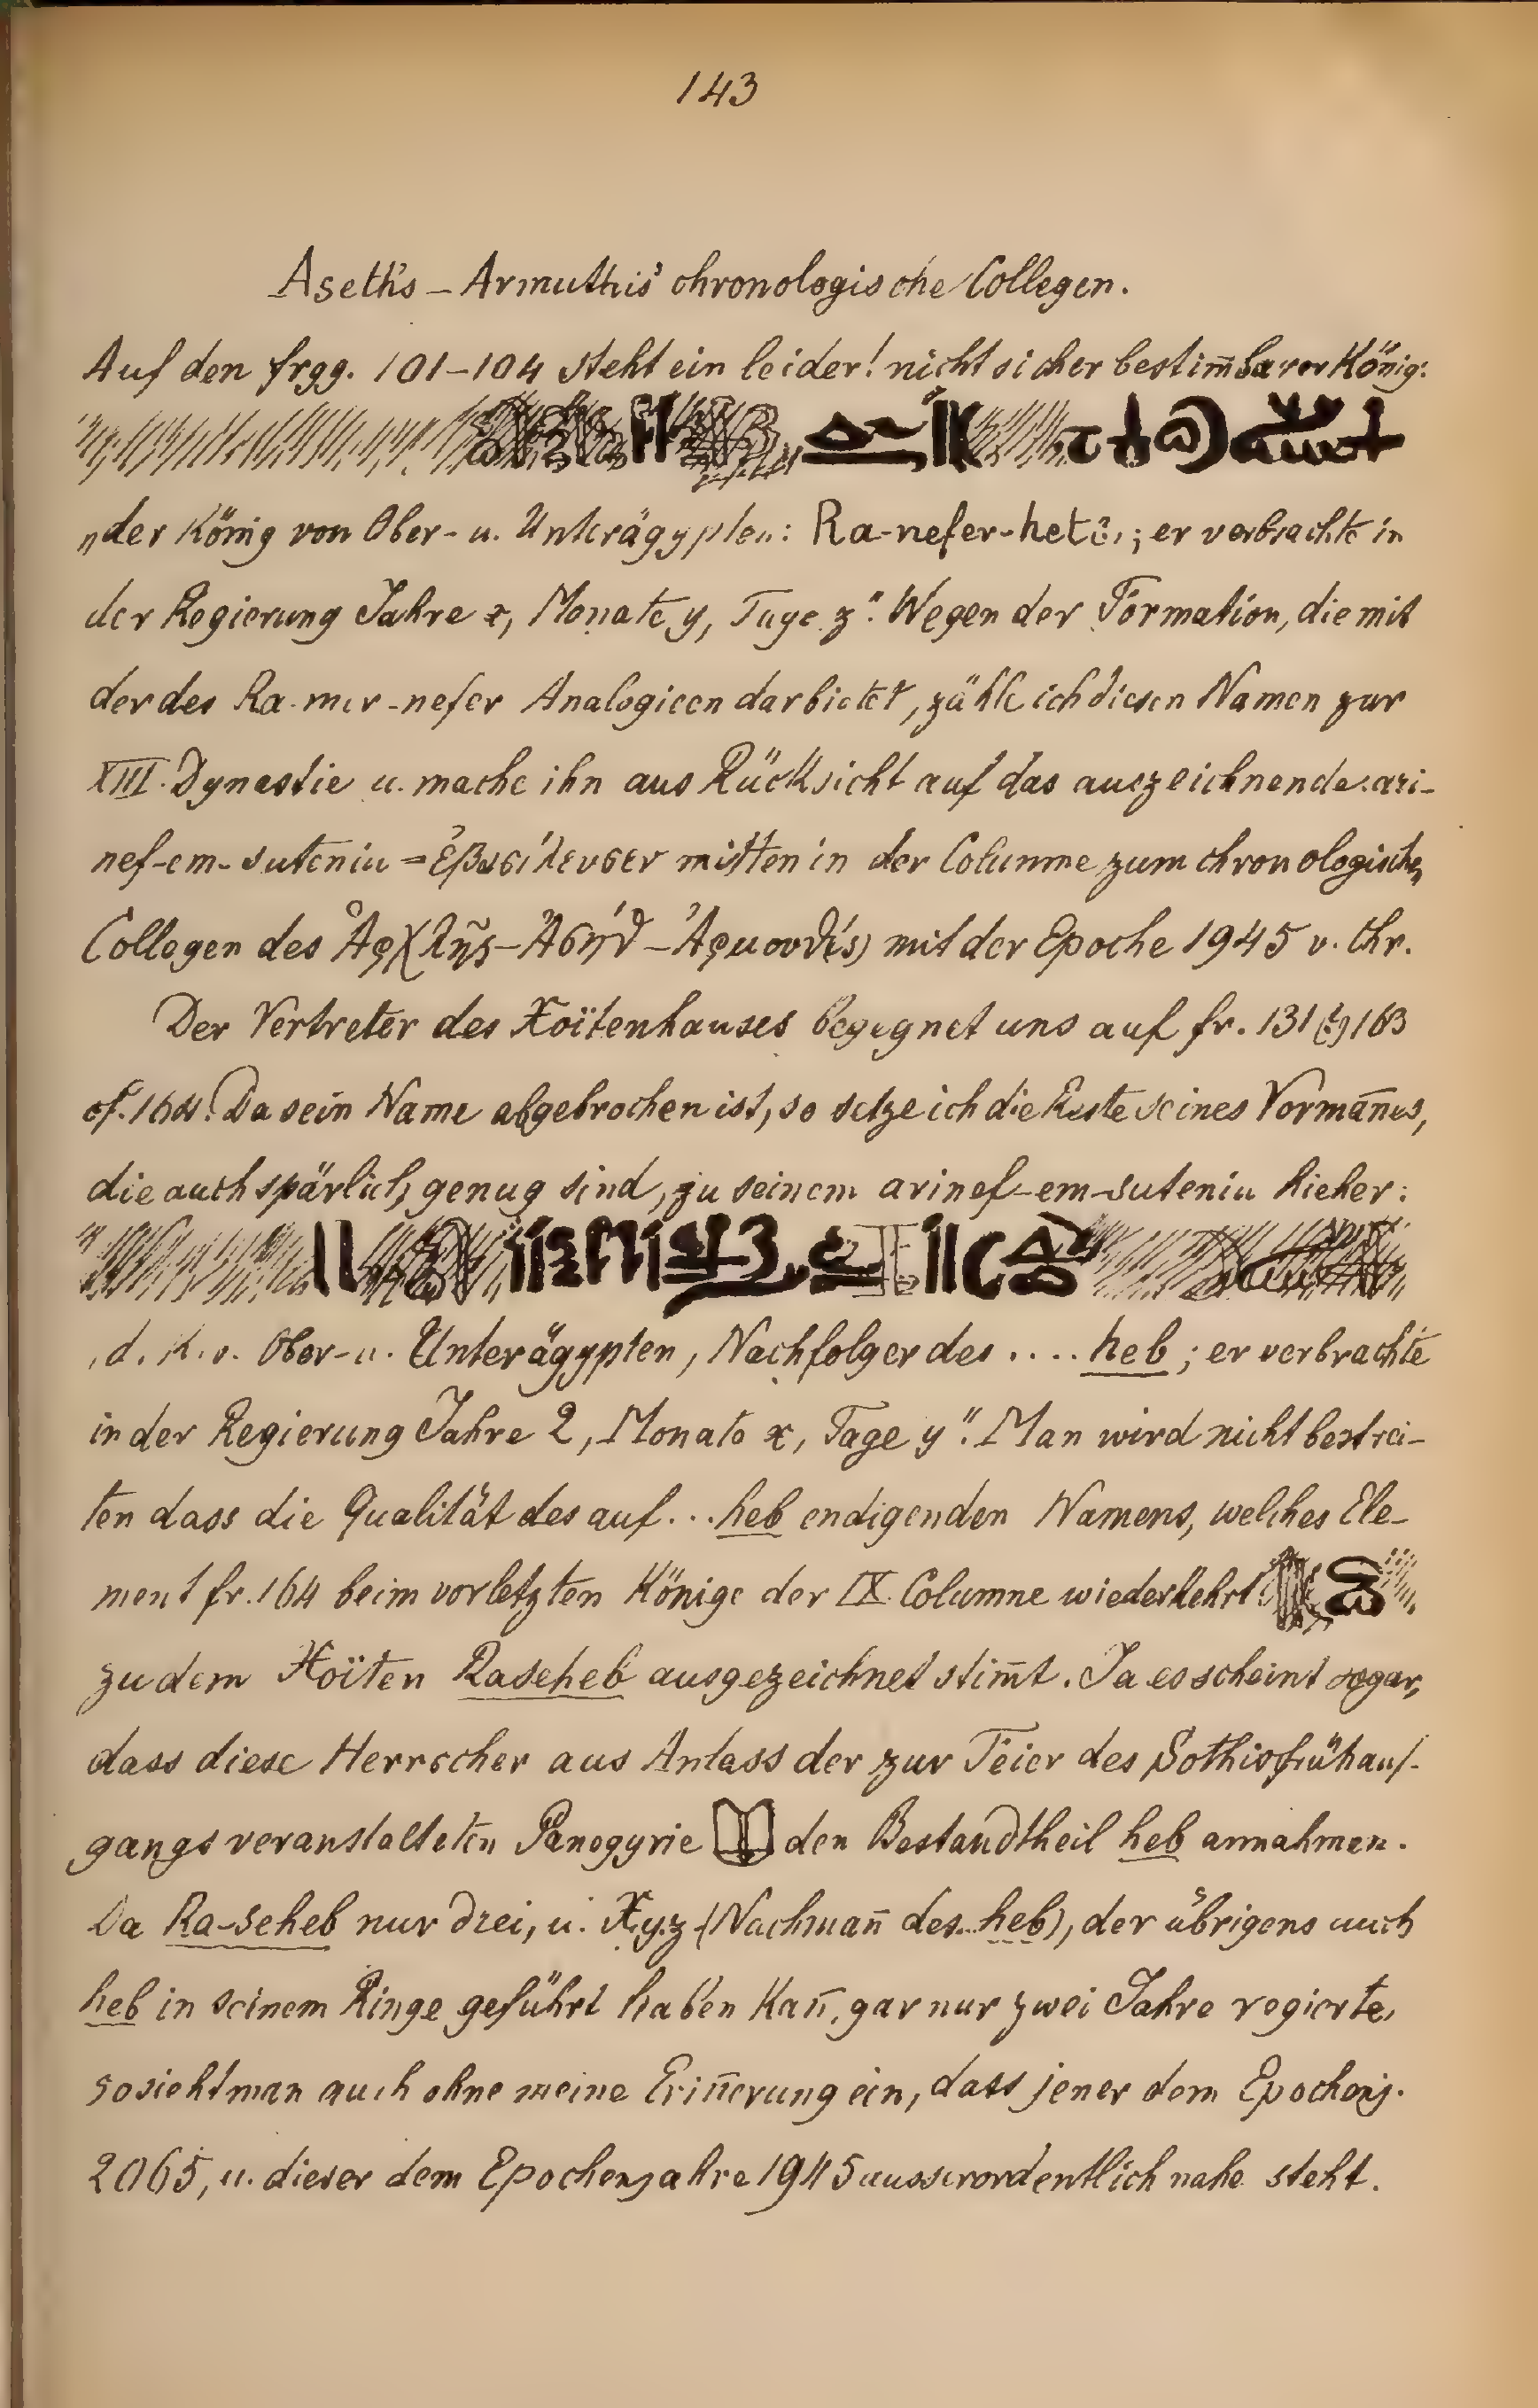 143
Aseth's – Armuthis' chronologische Collegen.
Auf den frgg. 101–104 steht ein leider! nicht sicher bestim̄barer König:
„der König von Ober- u. Unterägypten: Ra-nefer-het?, ; er verbrachte in
der Regierung Jahre x, Monate y, Tage z“. Wegen der Formation, die mit
der des Ra-mer-nefer Analogieen darbietet, zähle ich diesen Namen zur
XIII. Dynastie u. mache ihn aus Rücksicht auf das auszeichnende ari-
nef-em-suteniu = ἐβασίλευσεν mitten in der Columne zum chronologischen
Collegen des Ἄρχλης – Ἀσήθ – Ἀρμουθίς) mit der Epoche 1945 v. Chr.
Der Vertreter des Xoïtenhauses begegnet uns auf fr. 131 (?) 163
cf. 164. Da sein Name abgebrochen ist, so setze ich die Reste seines Vorman̄es,
die auch spärlich genug sind, zu seinem arinef-em-suteniu hieher:
„d. K. v. Ober- u. Unterägypten, Nachfolger des .... heb ; er verbrachte
in der Regierung Jahre 2, Monate x, Tage y“. Man wird nicht bestrei-
ten dass die Qualität des auf ... heb endigenden Namens, welches Ele-
ment fr. 164 beim vorletzten Könige der IX. Columne wiederkehrt
zu dem Xoïten Raseheb ausgezeichnet stim̄t. Ja es scheint sogar,
dass diese Herrscher aus Anlass der zur Feier des Sothisfrühauf-
gangs veranstalteten Panegyrie den Bestandtheil heb annahmen.
Da Ra-seheb nur drei, u. X.y.z (Nachman̄ des .. heb), der übrigens auch
heb in seinem Ringe geführt haben kan̄, gar nur zwei Jahre regierte,
so sieht man auch ohne meine Erin̄erung ein, dass jener dem Epochenj.
2065, u. dieser dem Epochenjahre 1945 ausserordentlich nahe steht.